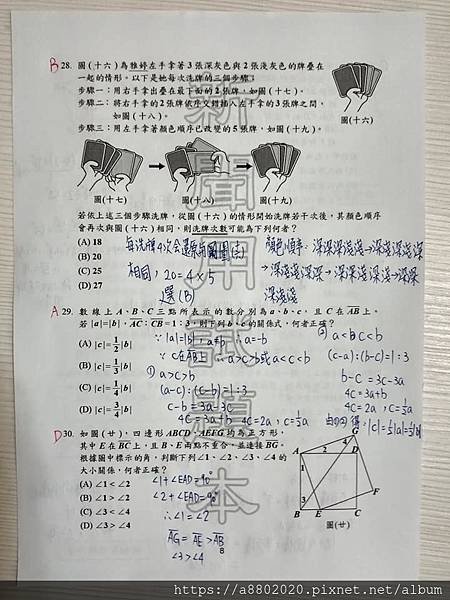 B 28. 圖(十六)為雅婷左手拿著3張深灰色與2張淺灰色的牌疊在
一起的情形。以下是她每次洗牌的三個步驟:
步驟一:用右手拿出疊在最下面的2張牌,如圖(十七)。
步驟二:將右手拿的2張牌依序交錯插入左手拿的3張牌之間,
如圖(十八)。
步驟三:用左手拿著顏色順序已改變的5張牌,如圖(十九)。
圖(十六)
圖(十七)
圖(十八)
圖(十九)
若依上述三個步驟洗牌,從圖(十六)的情形開始洗牌若干次後,其顏色順序
會再次與圖(十六)相同,則洗牌次數可能為下列何者?
(A) 18
(B) 20
(C) 25
(D) 27
每洗牌4次會
相同, 20=4×5
選(B)
顏色順序:深深深淺淺→深淺深淺深
深淺淺
A 29. 數線上A、B、C三點所表示的數分別為a、b、c,且C在AB上。
若|a|=|b|,AC:CB=1:3,則下列b、c的關係式,何者正確?
(A) |c|=1/2|b|
(B) |c|=1/3|b|
(C) |c|=1/4|b|
(D) |c|=3/4|b|
∵|a|=|b|, a≠b ∴a=-b
∵C在AB上 ∴a>c>b或a<c<b
① a>c>b
(a-c):(c-b)=1:3
c-b=3a-3c
4c=3a+b 4c=2a, c=1/2a
② a<c<b
(c-a):(b-c)=1:3
b-c=3c-3a
4c=3a+b
4c=2a, c=1/2a
由①②得:|c|=1/2|a|=1/2|b|
D 30. 如圖(廿),四邊形ABCD、AEFG均為正方形,
其中E在BC上,且B、E兩點不重合,並連接BG。
根據圖中標示的角,判斷下列∠1、∠2、∠3、∠4的
大小關係,何者正確?
(A) ∠1<∠2
(B) ∠1>∠2
(C) ∠3<∠4
(D) ∠3>∠4
∠1+∠EAD=90°
∠2+∠EAD=90°
∴∠1=∠2
AG=AE>AB
∠3>∠4
G
4
A
2
D
1
F
3
B
E
C
圖(廿)
8
新聞試題本
https://a8802020.pixnet.net/album